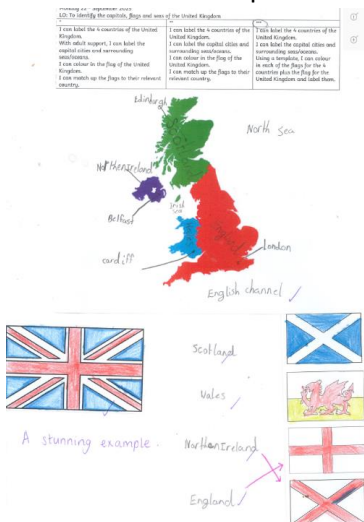 LO: To identify the capitals, flags and seas of the United Kingdom
I can label the 4 countries of the United Kingdom.
With adult support, I can label the capital cities and surrounding seas/oceans.
I can colour in the flag of the United Kingdom.
I can match up the flags to their relevant country.
I can label the 4 countries of the United Kingdom.
I can label the capital cities and surrounding seas/oceans.
I can colour in the flag of the United Kingdom.
I can match up the flags to their relevant country.
I can label the 4 countries of the United Kingdom.
I can label the capital cities and surrounding seas/oceans.
Using a template, I can colour in each of the flags for the 4 countries plus the flag for the United Kingdom and label them.
Edinburgh
North sea
NorthenIreland
Irish
sea
Belfast
cardiff
London
English channel
Scotland
Wales
A stunning example.
NorthenIreland
England